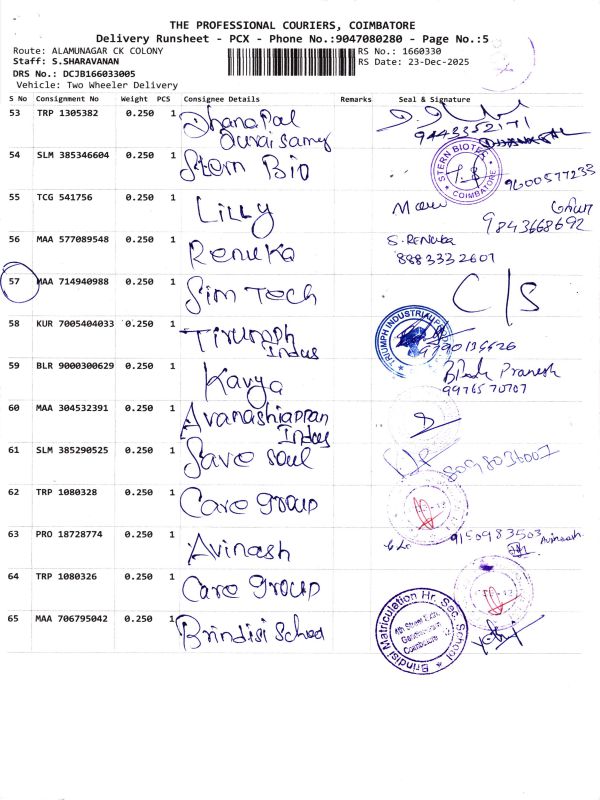 THE PROFESSIONAL COURIERS, COIMBATORE
Delivery Runsheet - PCX - Phone No.:9047080280 - Page No.:5
Route: ALAMUNAGAR CK COLONY
RS No.: 1660330
Staff: S.SHARAVANAN
RS Date: 23-Dec-2025
DRS No.: DCJB166033005
Vehicle: Two Wheeler Delivery
S No Consignment No Weight PCS Consignee Details Remarks Seal & Signature
53 TRP 1305382 0.250 1 Dhanapal
Duraisamy
9443352171
54 SLM 385346604 0.250 1 Stern Bio
STERN BIOTEC
COIMBATORE
9600577233
55 TCG 541756 0.250 1 LILLY
9843668692
56 MAA 577089548 0.250 1 Renuka S.RENUKA
8883332601
57 MAA 714940988 0.250 1 Sim Tech C/S
58 KUR 7005404033 0.250 1 Tirumph
Indus
TRIUMPH INDUSTRIAL
59 BLR 9000300629 0.250 1 Kavya Pranesh
9976570707
60 MAA 304532391 0.250 1 Avanashiappan
Indus
61 SLM 385290525 0.250 1 Save Soul 8098036007
62 TRP 1080328 0.250 1 Care Group
63 PRO 18728774 0.250 1 Avinash 9150983503 Avinash
64 TRP 1080326 0.250 1 Care Group
65 MAA 706795042 0.250 1 Brindisi School
Brindisi Matriculation Hr. Sec. School
Coimbatore